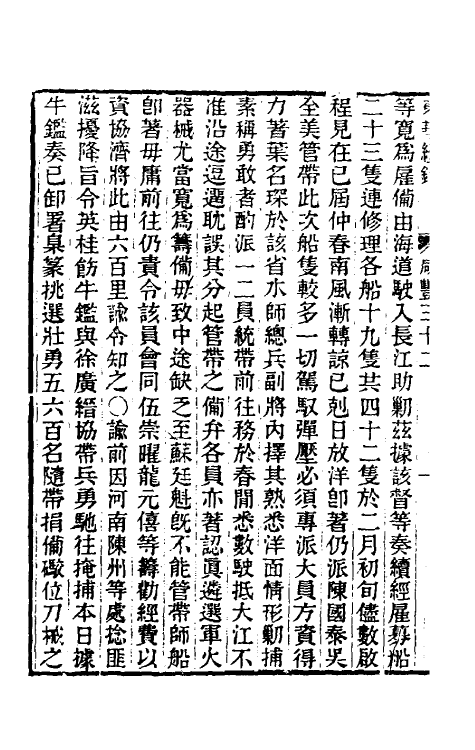 東華續錄　咸豐三十二
等寬爲雇備由海道駛入長江助勦茲據該督等奏續經雇募船
二十三隻連修理各船十九隻共四十二隻於二月初旬儘數啟
程見在已屆仲春南風漸轉諒已剋日放洋卽著仍派陳國泰吳
全美管帶此次船隻較多一切駕馭彈壓必須專派大員方資得
力著葉名琛於該省水師總兵副將內擇其熟悉洋面情形勦捕
素稱勇敢者酌派一二員統帶前往務於春閒悉數駛抵大江不
准沿途逗遛耽誤其分起管帶之備弁各員亦著認眞遴選軍火
器械尤當寬爲籌備毋致中途缺乏至蘇廷魁旣不能管帶師船
卽著毋庸前往仍責令該員會同伍崇曜龍元僖等籌勸經費以
資協濟將此由六百里諭令知之〇諭前因河南陳州等處捻匪
滋擾降旨令英桂飭牛鑑與徐廣縉協帶兵勇馳往掩捕本日據
牛鑑奏已卸署臬篆挑選壯勇五六百名隨帶捐備礮位刀械之